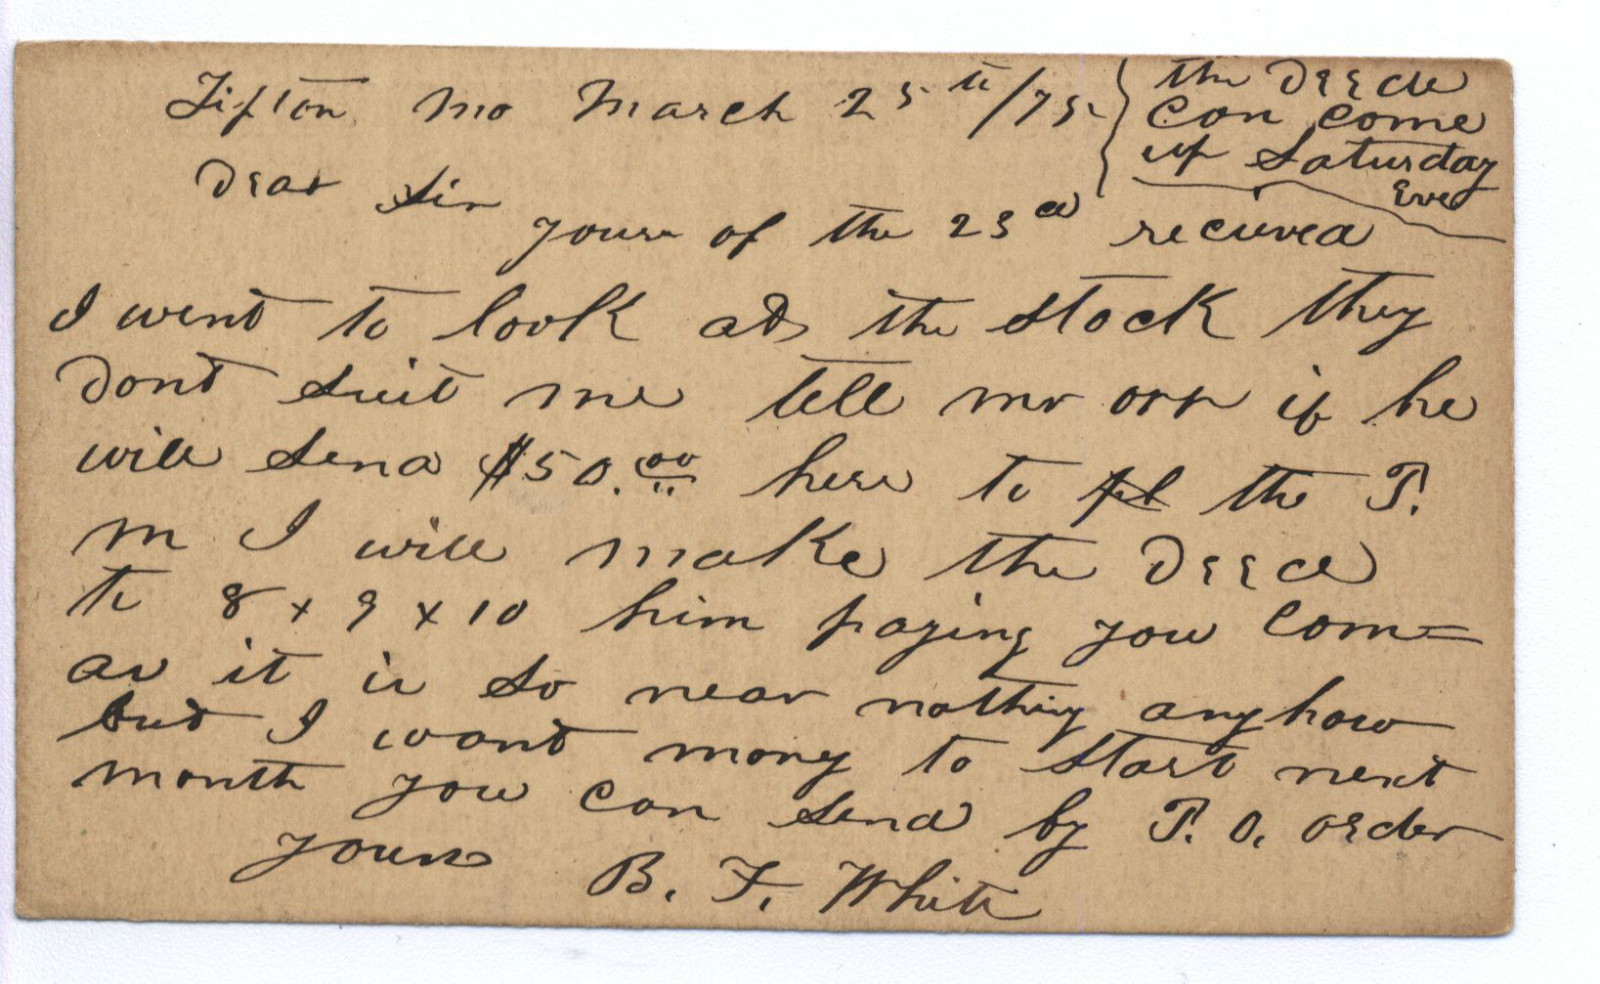 Tipton Mo March 25th/75
the Deed
can come
up Saturday
Eve
Dear Sir
yours of the 23d recieved
I went to look at the stock they
dont suit me tell mr orr if he
will send $50.00 here to the P.
m I will make the Deed
to 8 x 9 x 10 him paying you com=
as it is so near nothing anyhow
but I want mony to start next
month you can send by P. O. order
yours B. F. White